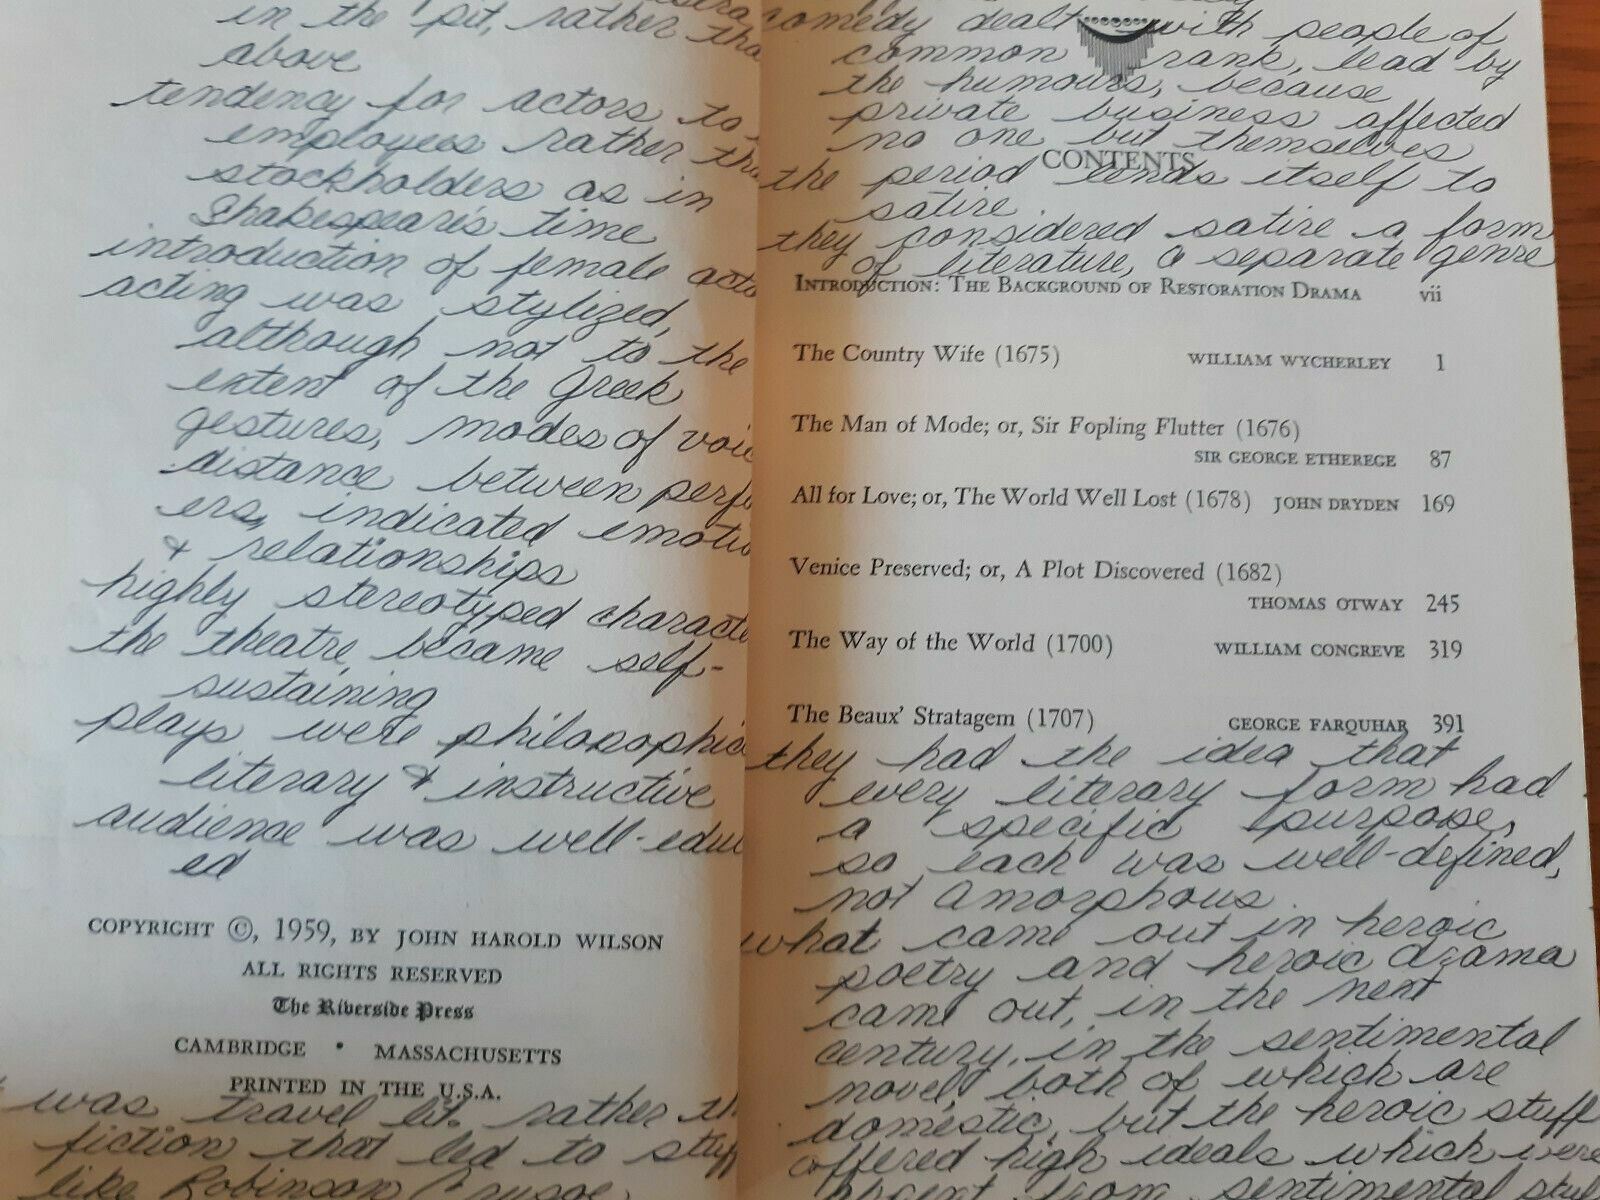 in the pit, rather
above
tendency for actors to
employees rather
stockholders as in
Shakespeare's time
introduction of female
acting was stylized,
although not to the
extent of the Greek
gestures, modes of
distance between
ers, indicated
& relationships
highly stereotyped
the theatre became self-
sustaining
plays were
literary & instructive
audience was well-
ed
COPYRIGHT ©, 1959, BY JOHN HAROLD WILSON
ALL RIGHTS RESERVED
The Riverside Press
CAMBRIDGE • MASSACHUSETTS
PRINTED IN THE U.S.A.
was travel lit. rather
fiction that led to stuff
like Robinson Crusoe
comedy dealt with people of
common rank, lead by
the humours, because
private business affected
no one but themselves
CONTENTS
the period lends itself to
satire
they considered satire a form
of literature, a separate genre
INTRODUCTION: THE BACKGROUND OF RESTORATION DRAMA vii
The Country Wife (1675) WILLIAM WYCHERLEY 1
The Man of Mode; or, Sir Fopling Flutter (1676)
SIR GEORGE ETHEREGE 87
All for Love; or, The World Well Lost (1678) JOHN DRYDEN 169
Venice Preserved; or, A Plot Discovered (1682)
THOMAS OTWAY 245
The Way of the World (1700) WILLIAM CONGREVE 319
The Beaux' Stratagem (1707) GEORGE FARQUHAR 391
they had the idea that
every literary form had
a specific purpose,
so each was well-defined,
not amorphous.
what came out in heroic
poetry and heroic drama
came out, in the next
century, in the sentimental
novel, both of which are
domestic, but the heroic stuff
offered high ideals which were
absent from sentimental